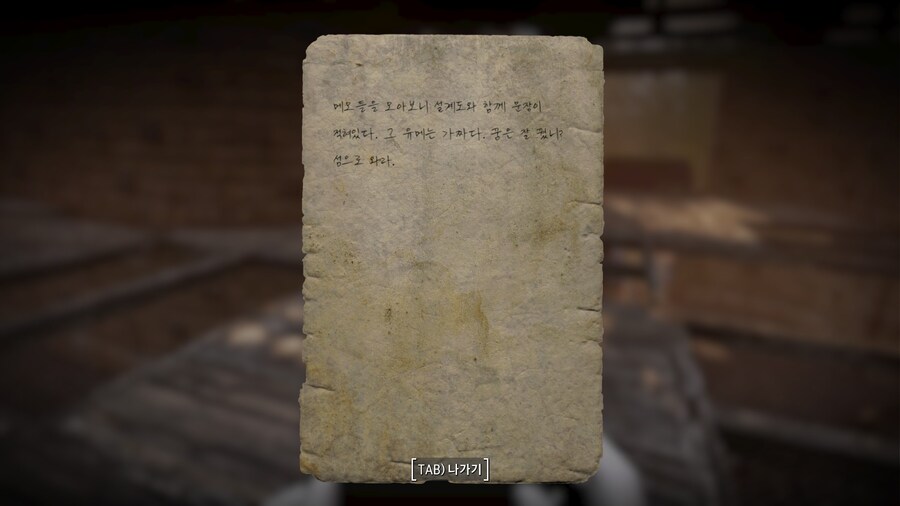 메모들을 모아보니 설계도와 함께 문장이
적혀있다. 그 유메는 가짜다. 꿈은 잘 꿨니?
섬으로 와라.
[TAB) 나가기]